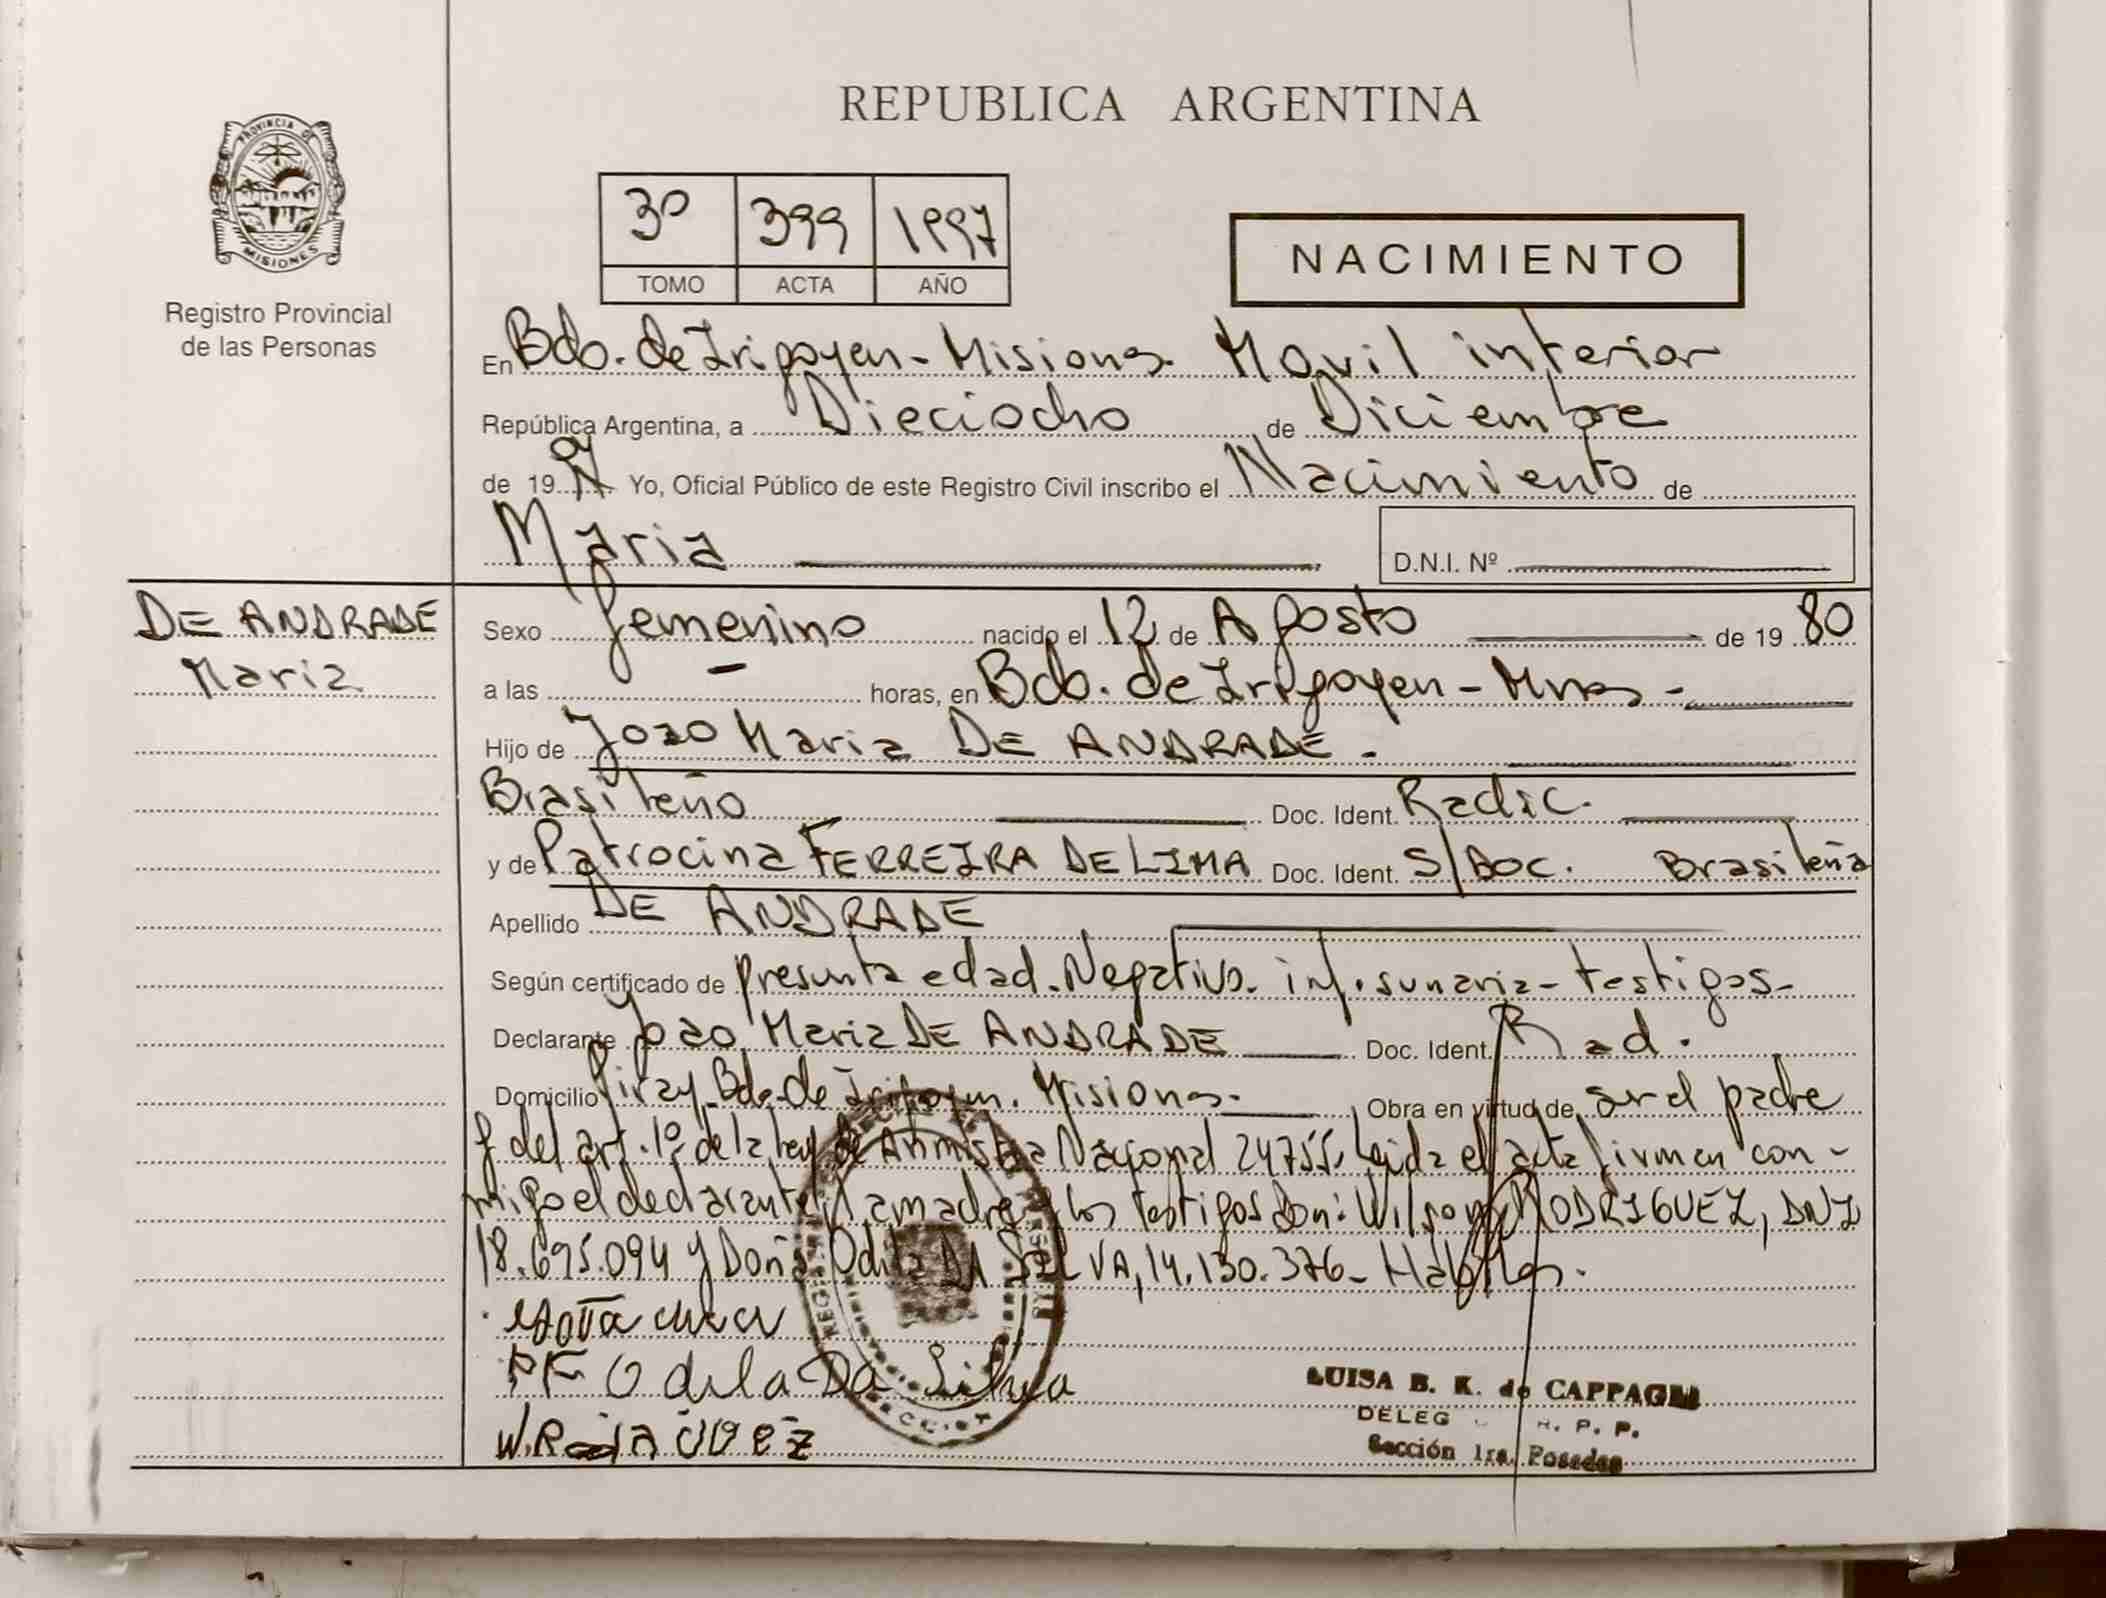 REPUBLICA ARGENTINA
PROVINCIA DE
MISIONES
Registro Provincial
de las Personas
3º 399 1997
TOMO ACTA AÑO
NACIMIENTO
En Bdo. de Irigoyen - Misiones. Movil interior
República Argentina, a Dieciocho de Diciembre
de 1997 Yo, Oficial Público de este Registro Civil inscribo el Nacimiento de
Maria
D.N.I. Nº
DE ANDRADE
Maria
Sexo femenino nacido el 12 de Agosto de 19 80
a las - horas, en Bdo. de Irigoyen - Mnes -
Hijo de Joao Maria DE ANDRADE.
Brasileño Doc. Ident. Radic.
y de Patrocina FERREIRA DE LIMA Doc. Ident. S/Doc. Brasileña
Apellido DE ANDRADE
Según certificado de presunta edad. Negativo. inf. sunaria - testigos -
Declarante Joao Maria DE ANDRADE Doc. Ident. Rad.
Domicilio Piray. Bdo. de Irigoyen. Misiones. Obra en virtud de ser el padre
y del art. 1º de la ley de Amnistia Nacional 24755. Leida el acta firman con-
migo el declarante, la madre y los testigos Don: Wilson RODRIGUEZ, DNI
18.695.094 y Doña Odila DA SILVA, 14.130.376 - Habiles.
PF Odila Da Silva
LUISA B. K. de CAPPAGLI
DELEG R. P. P.
Sección 1ra. Posadas